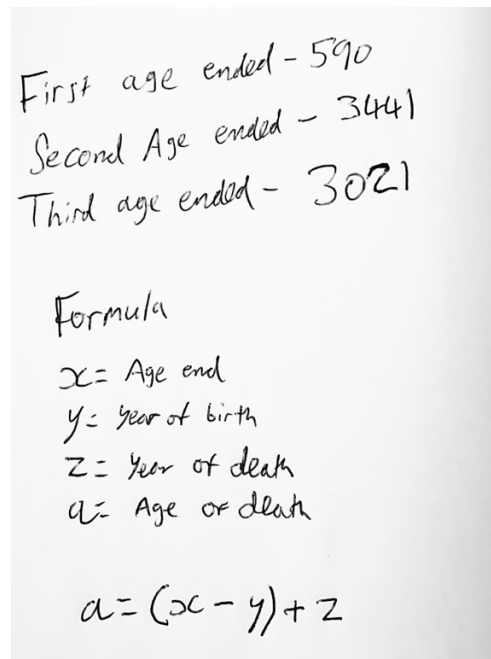 First age ended - 590
Second Age ended - 3441
Third age ended - 3021
Formula
x = Age end
y = year of birth
z = Year of death
a = Age of death
a = (x - y) + z